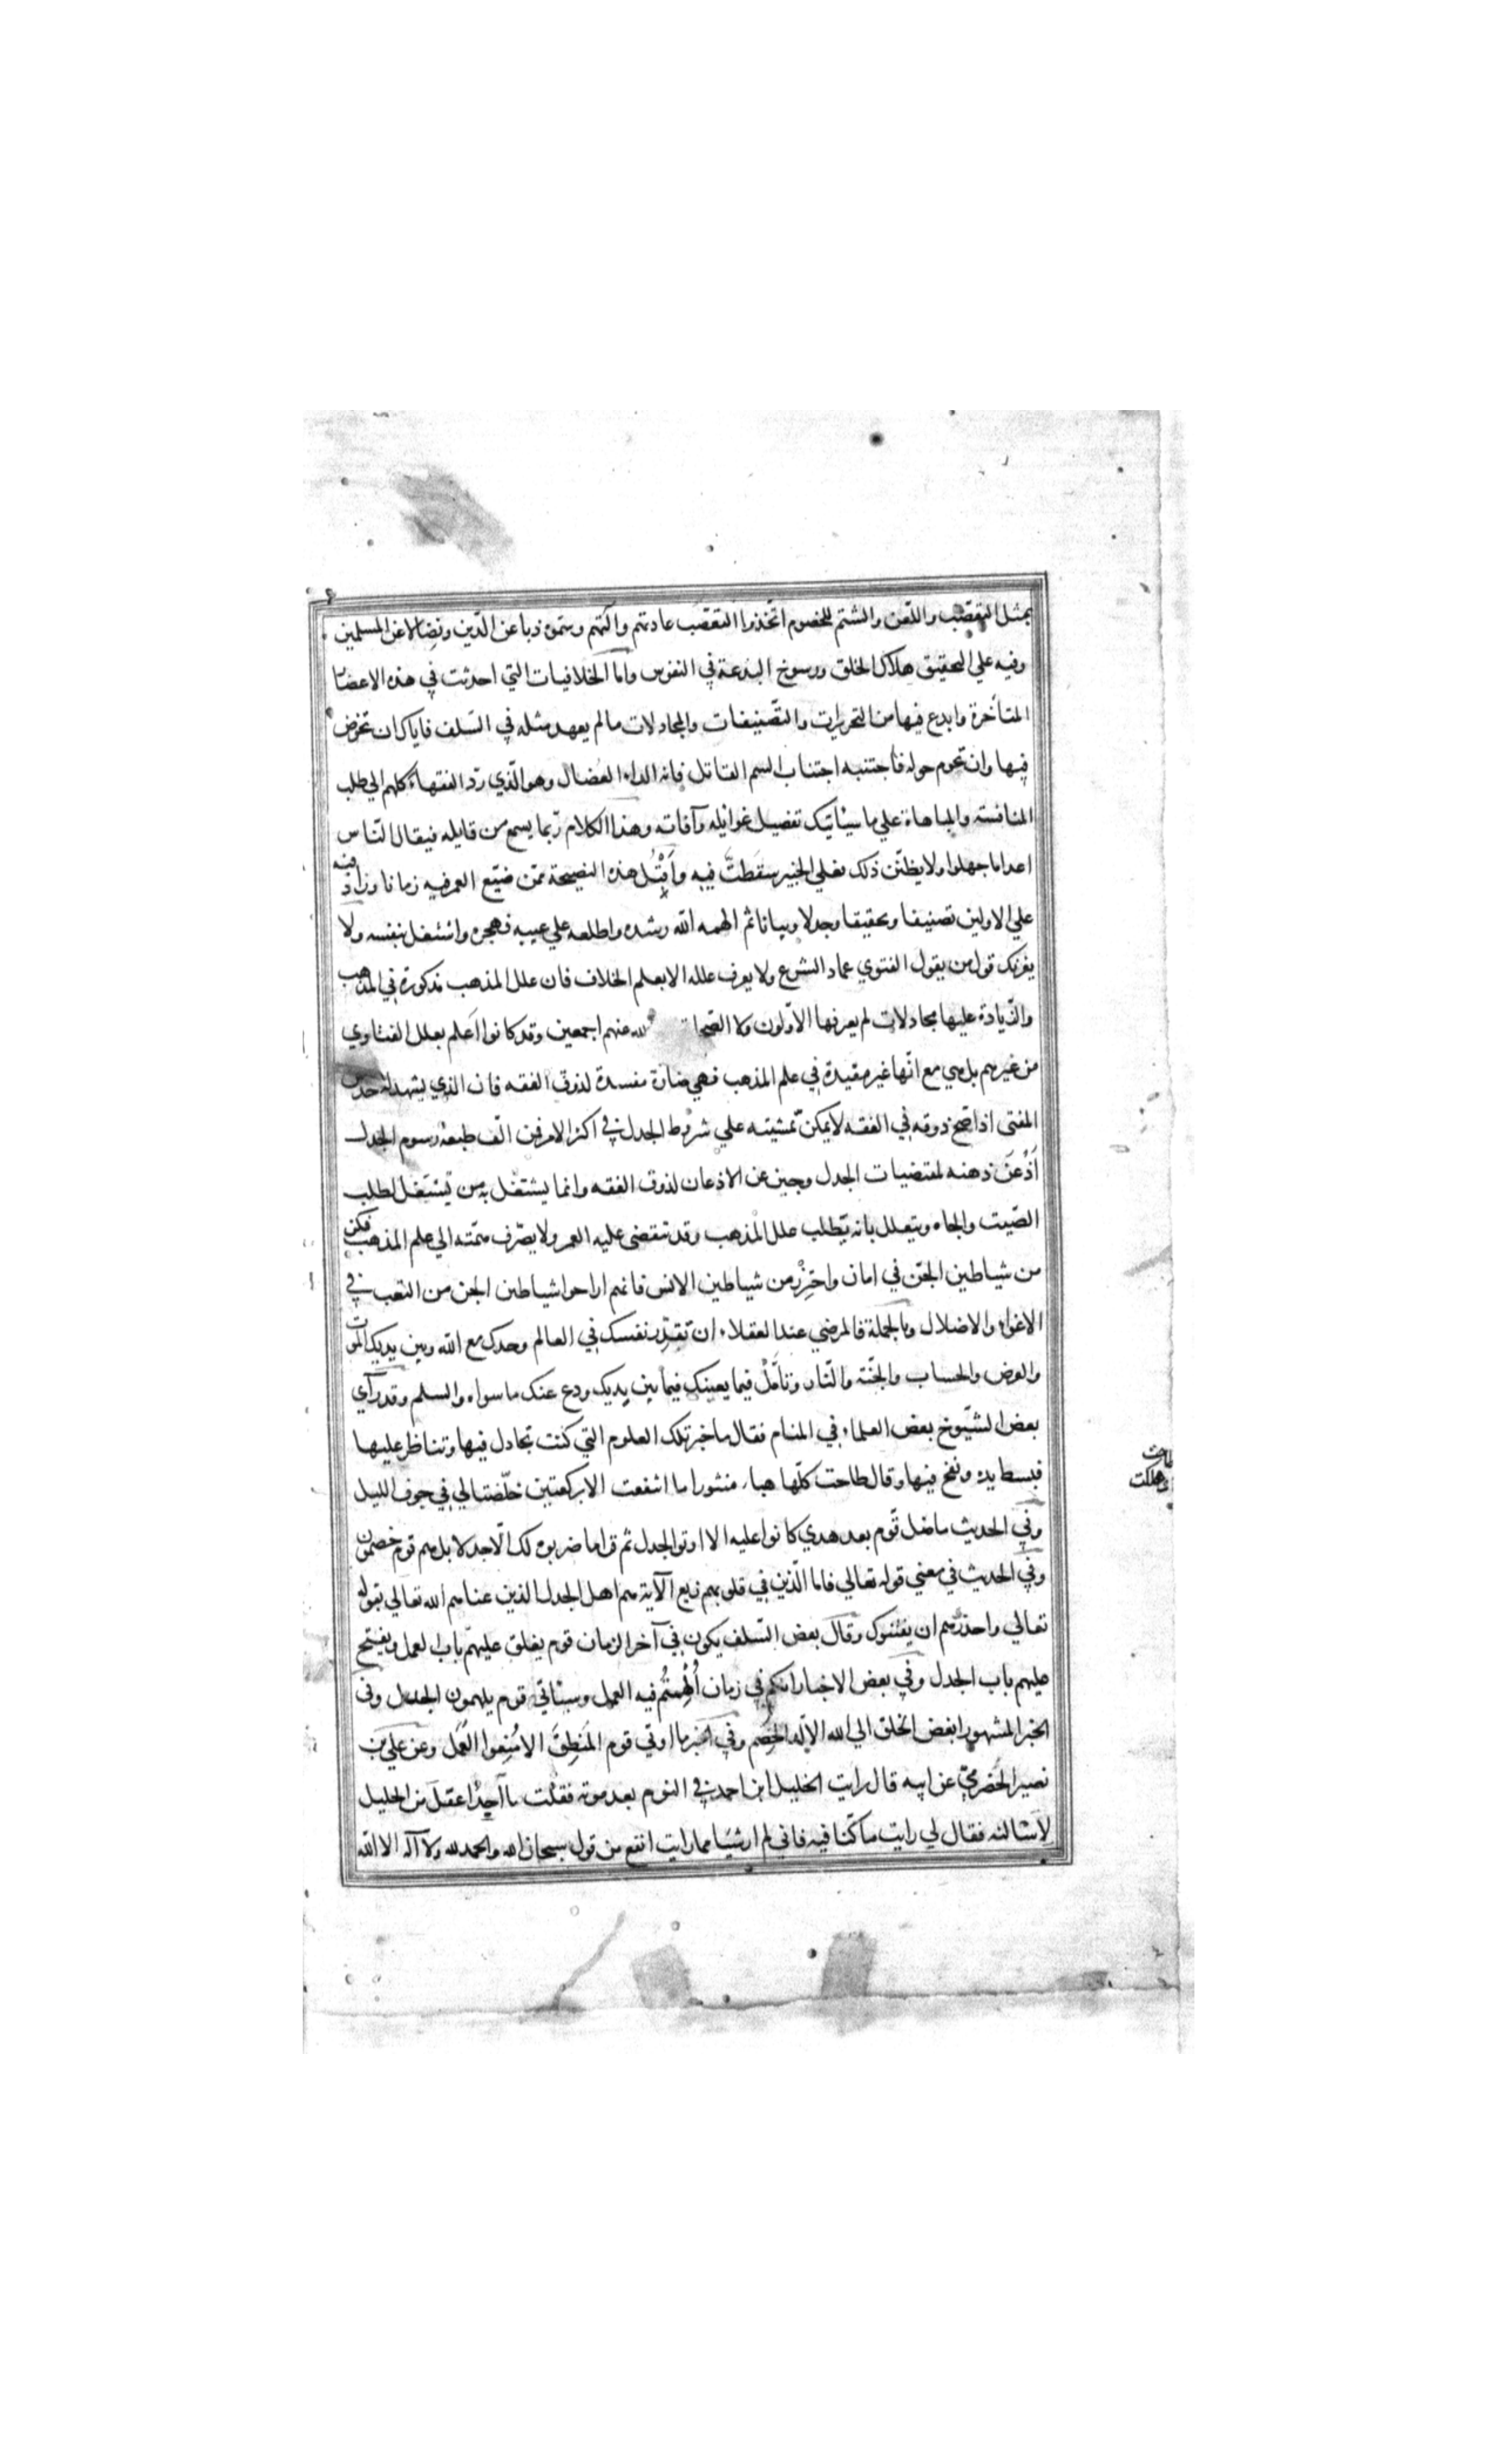 بمثل التعصّب واللّعن والشتم للخصوم اتّخذوا التعصّب عادتهم وآلتهم وسمّوه ذبا عن الدّين ونضالا عن المسلمين
وفيه علي التحقيق هلاك الخلق ورسوخ البدعة في النفوس واما الخلافيات التي احدثت في هذه الاعصار
المتأخرة وابدع فيها من التحريرات والتّصنيفات والمجادلات مالم يعهد مثله في السّلف فاياك ان تخوض
فيها وان تحوم حوله فأجتنبه اجتناب السم القاتل فانه الداء العضال وهو الّذي ردّ الفقهاء كلهم الي طلب
المنافسته والمباهاة علي ما سيأتيك تفصيل غوائله وآفاته وهذا الكلام ربّما يسمع من قايله فيقال النّاس
اعداء ما جهلوا ولا يظنّن ذلك فعلي الخبير سقطتَّ فيه وأقبل هذه النصيحة ممّن ضيّع العمر فيه زمانا وزاد فيه
علي الاولين تصنيفا وتحقيقا وجدلا وبيانا ثم الهمه الله رشده واطلعه علي عيبه فهجره واشتغل بنفسه ولا
يغرنك قول من يقول الفتوي عماد الشرع ولا يعرف علله الا بعلم الخلاف فان علل المذهب مذكورة في المذهب
والزّيادة عليها مجادلات لم يعرفها الاوّلون ولا الصّحا لله عنهم اجمعين وقد كانوا اعلم بعلل الفتاوي
من غيرهم بل هي مع انّها غير مفيدة في علم المذهب فهي ضارّة مفسدة لذوق الفقه فان الذي يشهد له حدس
المفتى اذا صحّ ذوقه في الفقه لا يمكن تمشيته علي شروط الجدل في اكثر الامر فمن الّف طبعه رسوم الجدل
أذعنَ ذهنه لمقتضيات الجدل وجبن عن الاذعان لذوق الفقه وانما يشتغل به من يشتغل لطلب
الصّيت والجاه ويتعلل بانه يّطلب علل المذهب وقد تنقضى عليه العمر ولا يصّرف همّته الي علم المذهب فكن
من شياطين الجنّ في امان واحترِزْ من شياطين الانس فانهم اراحوا شياطين الجن من التعب في
الاغواء والاضلال وبالجملة فالمرضي عند العقلاء ان تقدّر نفسك في العالم وحدك مع الله وبين يديك الموت
والعرض والحساب والجنّة والنّار وتأمّلْ فيما يعينك فيما بين يديك ودع عنك ما سواه والسلم وقد رآي
بعض الشّيوخ بعض العلماء في المنام فقال ما خبر تلك العلوم التي كنت تجادل فيها وتناظر عليها
فبسط يده ونفخ فيها وقال طاحت كلّها هباء منثورا ما انتفعت الا بركعتين خلّصتا لي في جوف الليل
وفي الحديث ما ضل قّوم بعد هدي كانوا عليه الا اوتوا الجدل ثم قرا ما ضربوه لك الّا جدلا بل هم قوم خصمون
وفي الحديث في معني قوله تعالي فاما الّذين في قلوبهم زيع الآية هم اهل الجدل الذين عناهم الله تعالي بقوله
تعالي واحذرهم ان يفتنوك وقال بعض السّلف يكون في آخر الزمان قوم يغلق عليهم باب العمل ويفتح
عليهم باب الجدل وفي بعض الاخبار انكم في زمان أُلهمتُم فيه العمل وسيأتي قوم يلهمون الجدل وفى
الخبر المشهور ابغض الخلق الي الله الالّد الخصم وفي الخبر ما اوتي قوم المَنطِقَ الا مُنِعوا العَمل وعن علي بن
نصير الحضرميّ عن ابيه قال رايت الخليل ابن احمد في النوم بعد موته فقلت ما آجدُ اعقل من الخليل
لاسالنه فقال لي رايت ما كنا فيه فاني لم ار شيا مما رايت انفع من قول سبحان الله والحمد لله ولا آله الا الله
طاحت
ي هلكت